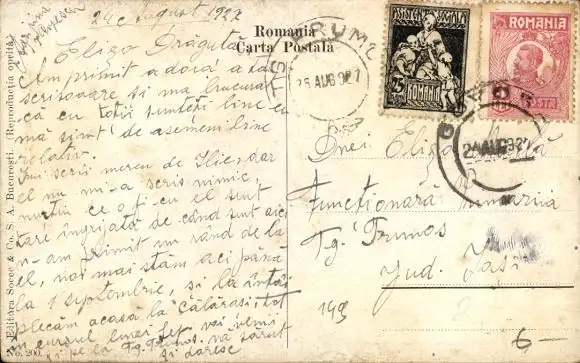 24 August 1927
Romania
Carta Postala
Eligo Draguță
Am primit a doua a ta
scrisoare și mă bucură
că cu toții sunteți bine eu
mă simt de asemeni bine
relativ.
Îmi scrii mereu de Ilie, dar
el nu mi-a scris nimic,
nu știu ce o fi cu el sunt
tare îngrijată de când sunt aici
n-am primit un rând de la
el, noi mai stăm aci până
la 1 septembrie, și la întâi
plecăm acasă la Călărași tot
în cursul lunei
și pe la Tg. Frumos. te sărut
și doresc
A. Editura Socec & Co. S. A. Bucuresti. (Reproducția oprită)
No. 200.
ASISTENȚA SOCIALĂ
25 BANI
ROMANIA
ROMANIA
POSTA
TG. FRUMOS
25 AUG 927
24 AUG 927
Dnei Eliza
Funcționară
Tg. Frumos
Jud. Iași
149
6-